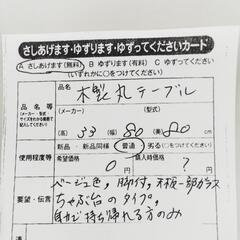 さしあげます・ゆずります・ゆずってくださいカード
A さしあげます(無料) B ゆずります(有料) C ゆずってください
(いずれかに○をつけてください)
品名 木製丸テーブル
品名等
(メーカー・型式
サイズをわかる範囲で
記載してください)
(メーカー) (型式)
高さ 33 幅 80
新品・新品同様 普通 劣る(○をつけてください)
使用程度等
希望価格 0 円
購入時価格 ? 円
要望・伝言
ベージュ色,脚付,天板一部ガラス
ちゃぶ台のタイプ,
自力で持ち帰れる方のみ